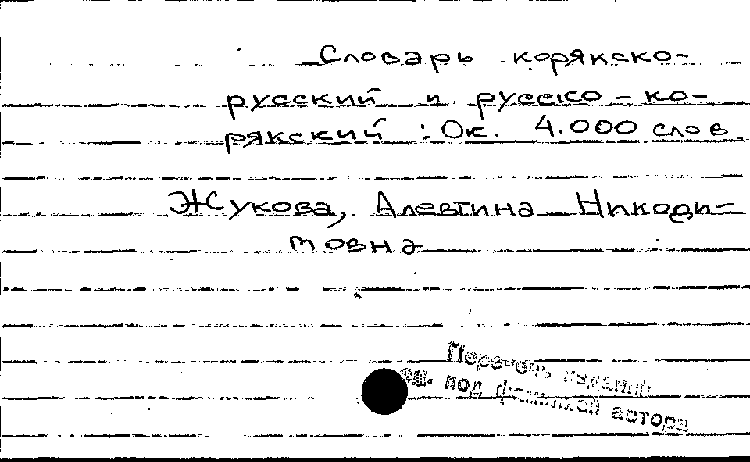 Словарь корякско-
русский и русско-ко-
рякский : Ок. 4.000 слов
Жукова, Алевтина Никоди-
мовна
Перечень изданий
см. под фамилией автора